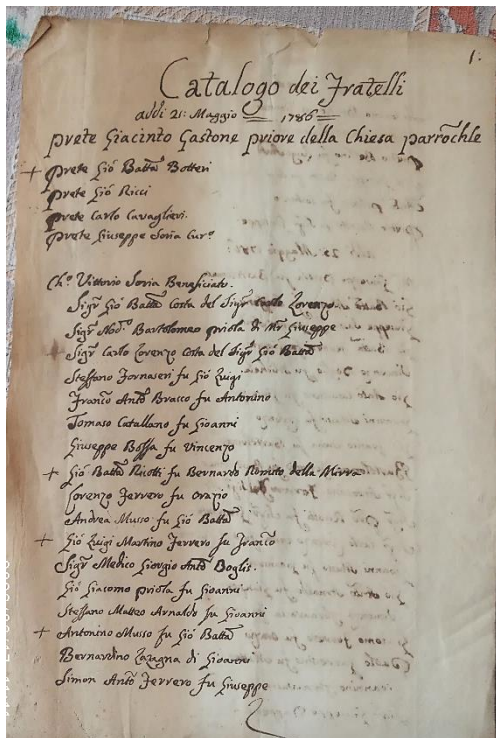 1.
Catalogo dei Fratelli
addi 21: Maggio 1786
prete Giacinto Gastone priore della Chiesa parrochle
+ prete Gio Batta Botteri
prete Gio Ricci
prete Carlo Cavaglieri
prete Giuseppe Soria Curo
Cho Vittorio Soria Beneficiato.
Sigr Gio Batta Costa del Sigr Carlo Lorenzo
Sigr Nod. Bartolomeo priola di Mr Giuseppe
+ Sigr Carlo Lorenzo Costa del Sigr Gio Batta
Steffano Fornaseri fu Gio Luigi
Franco Anto Bracco fu Antonino
Tomaso Catallano fu Gioanni
Giuseppe Bossa fu Vincenzo
+ Gio Batta Ricotti fu Bernardo Romito della Mirra
Lorenzo Ferrero fu Orazio
Andrea Musso fu Gio Batta
+ Gio Luigi Martino Ferrero fu Franco
Sigr Medico Giorgio Anto Boglis.
Gio Giacomo priola fu Gioanni
Steffano Matteo Arnaldo fu Gioanni
+ Antonino Musso fu Gio Batta
Bernardino Zaragna di Gioanni
Simon Anto Ferrero fu Giuseppe